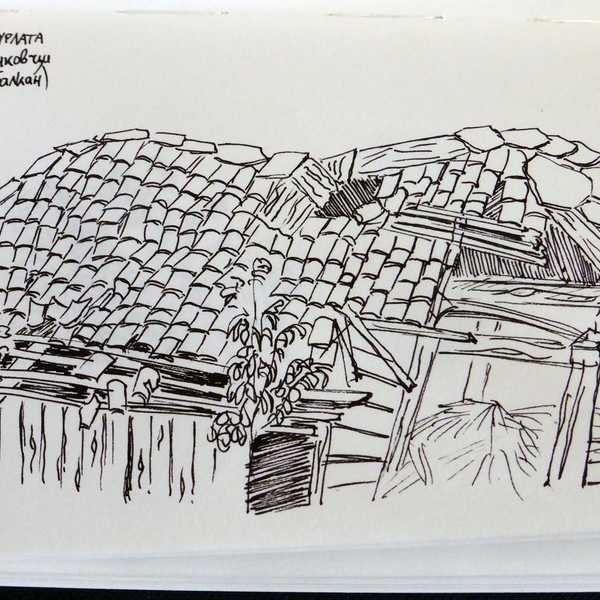 УРЛАТА
нковци
Балкан)